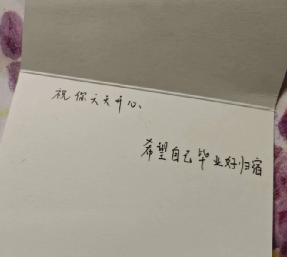 祝你天天开心、
希望自己毕业好归宿